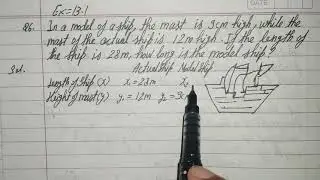 Ex=13.1
DATE
Q6. In a model of a ship, the mast is 9cm high, while the
mast of the actual ship is 12m high. If the length of
the ship is 28m, how long is the model ship?
Sol. Actual ship Model ship
Length of Ship (x) x₁ = 28m x₂
Height of mast (y) y₁ = 12m y₂ = 9c